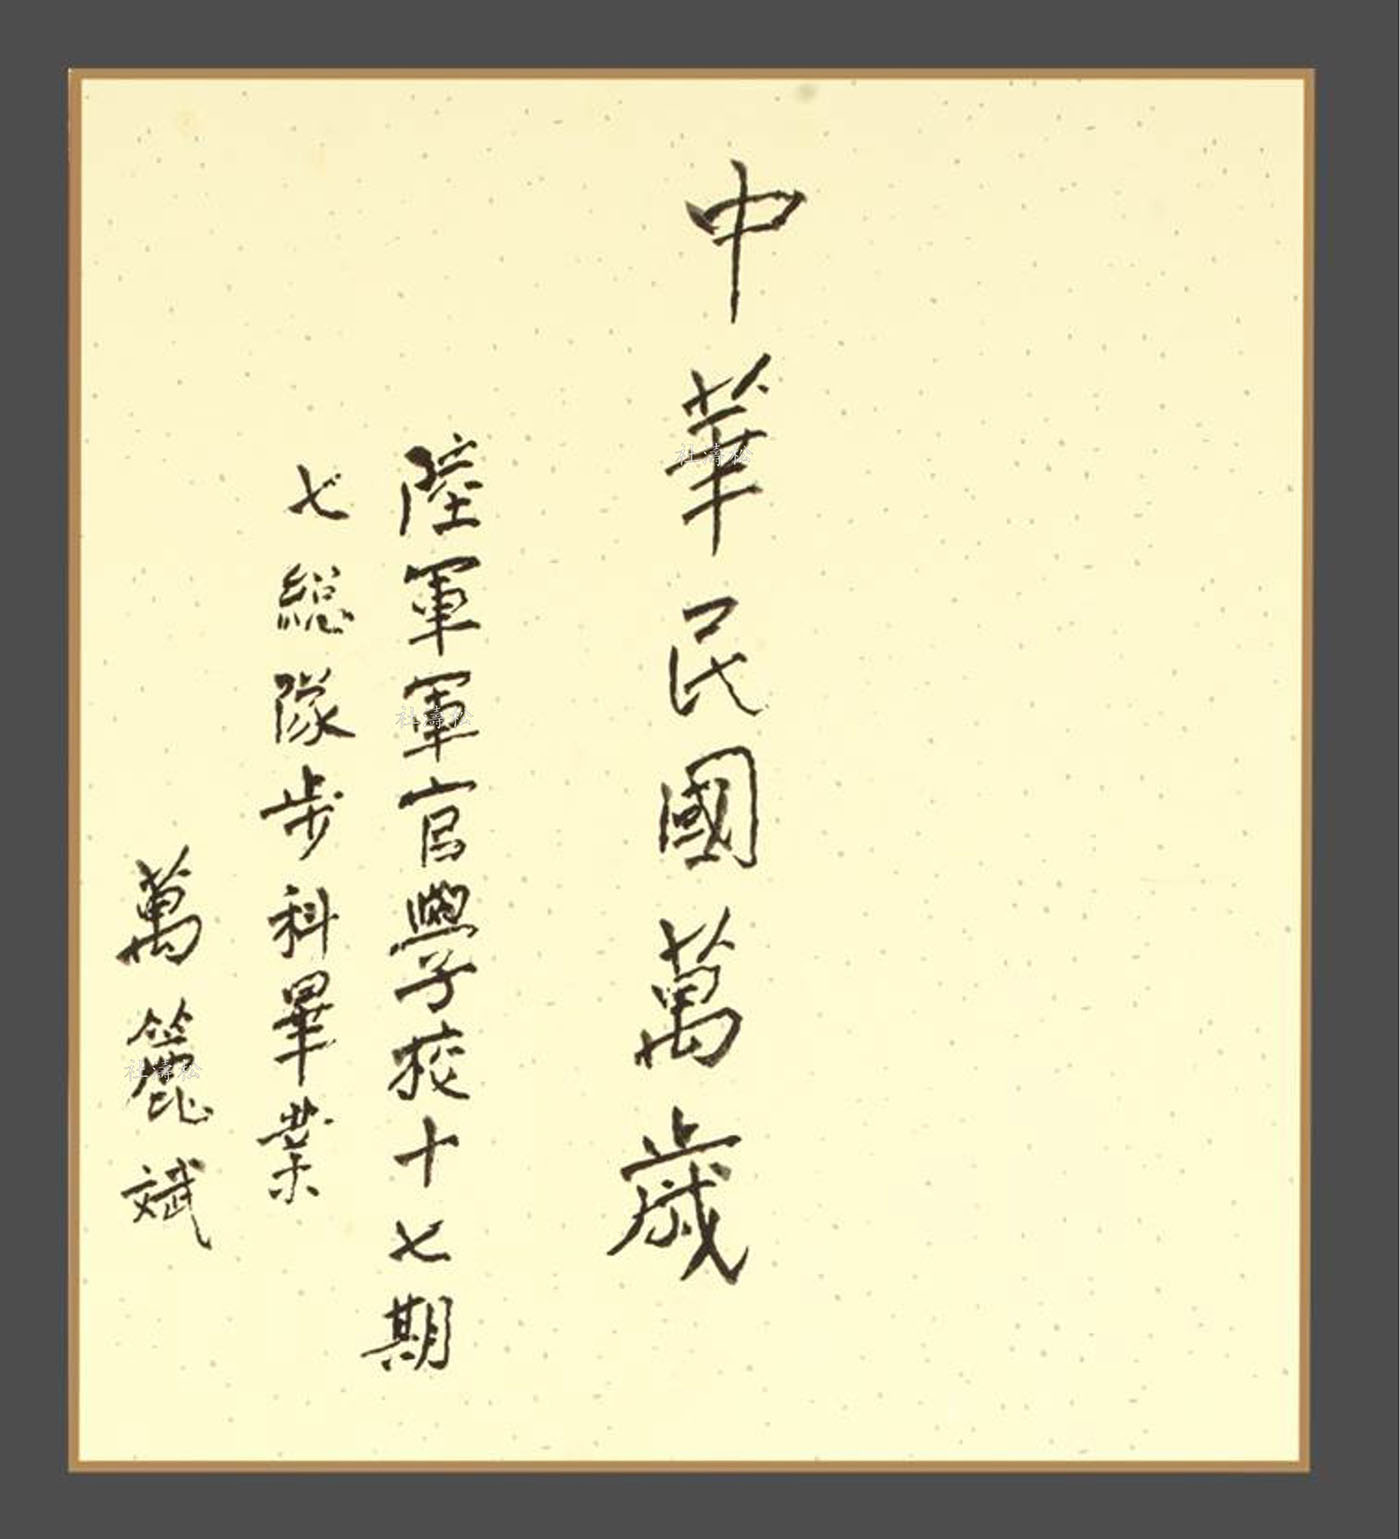 中華民國萬歲
陸軍軍官學校十七期
七総隊步科畢業
萬籠斌
杜壽松
杜壽松
杜壽松